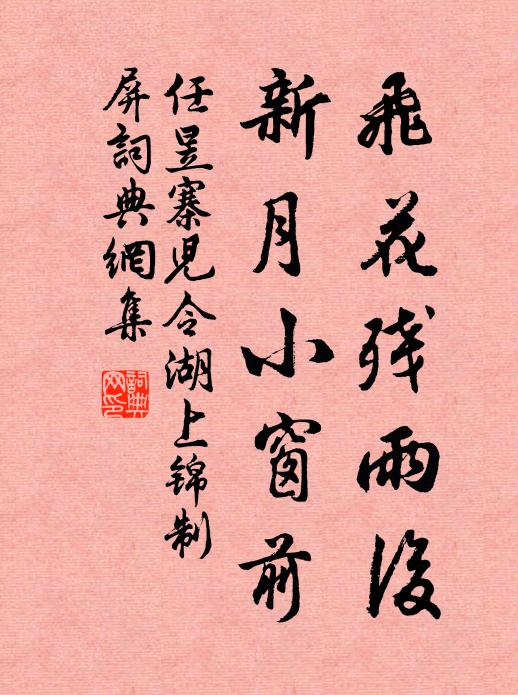 飛花殘雨後
新月小窗前
任昱寨兒令湖上錦制
屏詞典網集
詞典網印